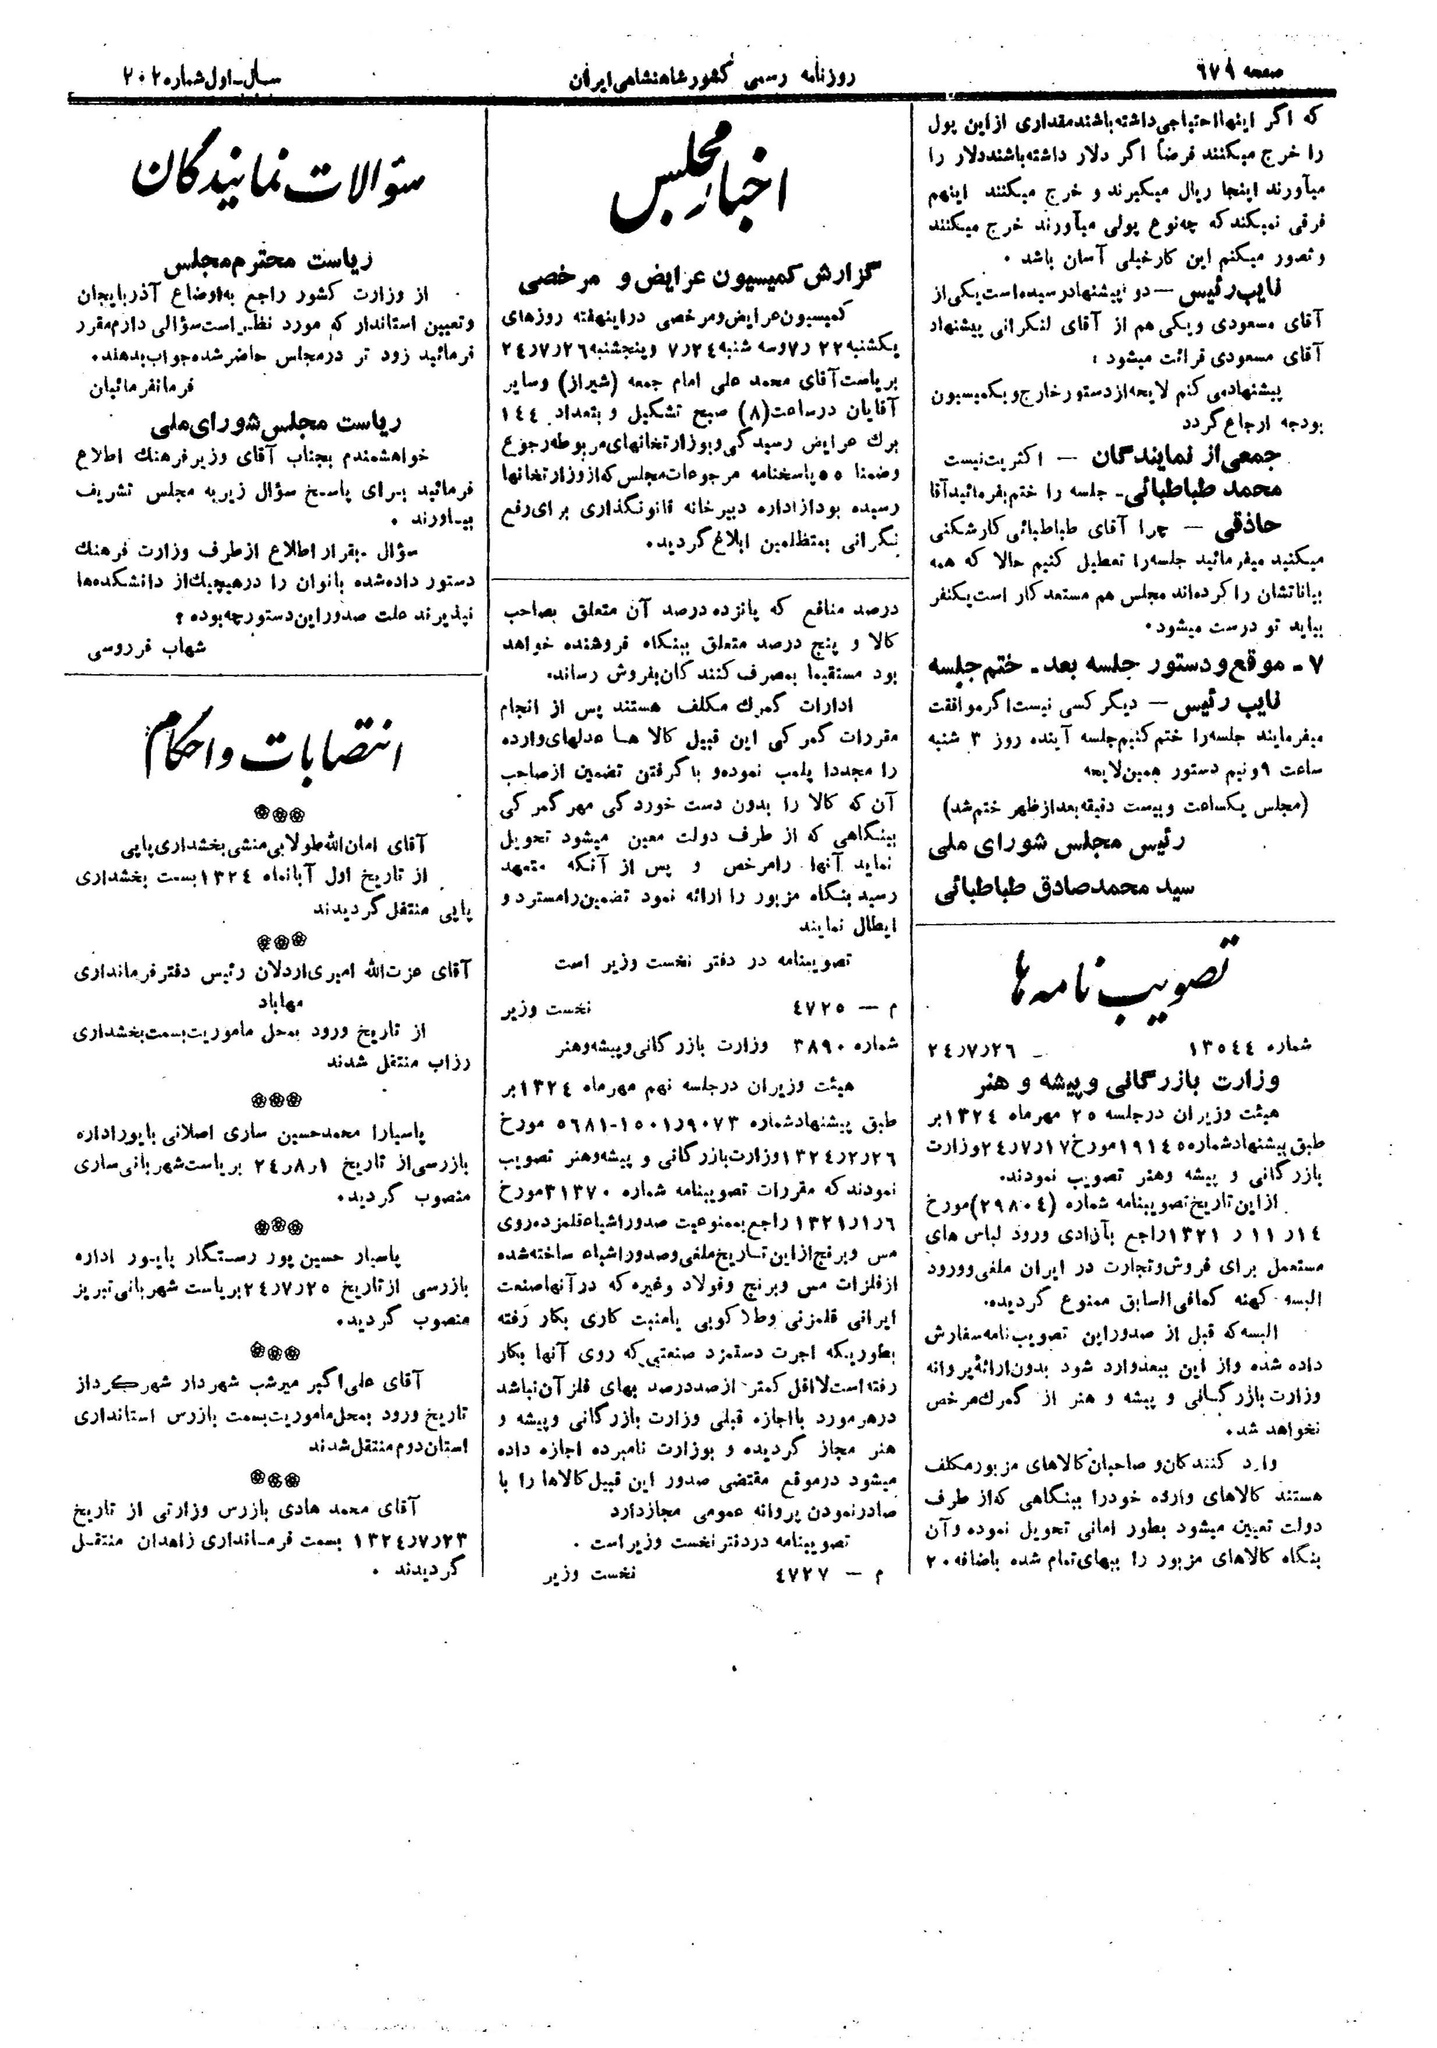 صفحه ۶۷۹
روزنامه رسمی کشور شاهنشاهی ایران
سال ـ اول شماره ۲۰۲
که اگر اینها احتیاجی داشته باشند مقداری از این پول
را خرج میکنند فرضاً اگر دلار داشته باشند دلار را
میآورند اینجا ریال میگیرند و خرج میکنند اینهم
فرقی نمیکند که چه نوع پولی میآورند خرج میکنند
و تصور میکنم این کار خیلی آسان باشد .
نایب رئیس — دو پیشنهاد رسیده است یکی از
آقای مسعودی و یکی هم از آقای لنکرانی پیشنهاد
آقای مسعودی قرائت میشود :
پیشنهاد می کنم لایحه از دستور خارج و بکمیسیون
بودجه ارجاع گردد
جمعی از نمایندگان — اکثریت نیست
محمد طباطبائی ـ جلسه را ختم بفرمائید آقا
حاذقی — چرا آقای طباطبائی کارشکنی
میکنید میفرمائید جلسه را تعطیل کنیم حالا که همه
بیاناتشان را کرده‌اند مجلس هم مستعد کار است یکنفر
بیاید تو درست میشود .
۷ ـ موقع و دستور جلسه بعد ـ ختم جلسه
نایب رئیس — دیگر کسی نیست اگر موافقت
میفرمایند جلسه را ختم کنیم جلسه آینده روز ۳ شنبه
ساعت ۹ و نیم دستور همین لایحه
(مجلس یکساعت و بیست دقیقه بعد از ظهر ختم شد)
رئیس مجلس شورای ملی
سید محمد صادق طباطبائی
تصویب نامه ها
شماره ۱۳۵۴۴ ـ ۲۴ر۷ر۲۶
وزارت بازرگانی و پیشه و هنر
هیئت وزیران در جلسه ۲۵ مهر ماه ۱۳۲۴ بر
طبق پیشنهاد شماره ۱۹۱۴۵ مورخ ۲۴ر۷ر۱۷ وزارت
بازرگانی و پیشه و هنر تصویب نمودند.
از این تاریخ تصویبنامه شماره (۲۹۸۰۴) مورخ
۱۴ر۱۱ر۱۳۲۱ راجع بآزادی ورود لباس های
مستعمل برای فروش و تجارت در ایران ملغی و ورود
البسه کهنه کمافی السابق ممنوع گردیده.
البسه که قبل از صدور این تصویب نامه سفارش
داده شده و از این ببعد وارد شود بدون ارائه پروانه
وزارت بازرگانی و پیشه و هنر از گمرك مرخص
نخواهد شد.
وارد کنندکان و صاحبان کالاهای مزبور مکلف
هستند کالاهای وارده خود را ببنگاهی که از طرف
دولت تعیین میشود بطور امانی تحویل نموده و آن
بنگاه کالاهای مزبور را ببهای تمام شده باضافه ۲۰
اخبار مجلس
گزارش کمیسیون عرایض و مرخصی
کمیسیون عرایض و مرخصی در اینهفته روزهای
یکشنبه ۲۲ر۷ و سه شنبه ۲۴ر۷ و پنجشنبه ۲۶ر۷ر۲۴
بریاست آقای محمد علی امام جمعه (شیراز) و سایر
آقایان در ساعت (۸) صبح تشکیل و بتعداد ۱۴۴
برك عرایض رسیدگی و بوزارتخانهای مربوطه رجوع
و ضمنا ۵۵ پاسخنامه مرجوعات مجلس که از وزارتخانها
رسیده بود از اداره دبیرخانه قانونگذاری برای رفع
نگرانی بمتظلمین ابلاغ گردید.
درصد منافع که پانزده درصد آن متعلق بصاحب
کالا و پنج درصد متعلق ببنگاه فروشنده خواهد
بود مستقیما بمصرف کنندکان بفروش رساند.
ادارات گمرك مکلف هستند پس از انجام
مقررات گمرکی این قبیل کالا ها عدلهای وارده
را مجددا پلمب نموده و با گرفتن تضمین از صاحب
آن که کالا را بدون دست خوردگی مهر گمرکی
ببنگاهی که از طرف دولت معین میشود تحویل
نماید آنها را مرخص و پس از آنکه متعهد
رسید بنگاه مزبور را ارائه نمود تضمین را مسترد و
ابطال نمایند
تصویبنامه در دفتر نخست وزیر است
م — ۴۷۲۵ نخست وزیر
شماره ۳۸۹۰ وزارت بازرگانی و پیشه و هنر
هیئت وزیران در جلسه نهم مهر ماه ۱۳۲۴ بر
طبق پیشنهاد شماره ۹۰۷۳ر۱۵۰۱-۵۶۸۱ مورخ
۲۶ر۲ر۱۳۲۴ وزارت بازرگانی و پیشه و هنر تصویب
نمودند که مقررات تصویبنامه شماره ۳۱۳۷۰ مورخ
۶ر۱ر۱۳۲۱ راجع بممنوعیت صدور اشیاء قلمزده روی
مس و برنج از این تاریخ ملغی و صدور اشیاء ساخته شده
از فلزات مس و برنج و فولاد و غیره که در آنها صنعت
ایرانی قلمزنی و طلاکوبی یا منبت کاری بکار رفته
بطوریکه اجرت دستمزد صنعتی که روی آنها بکار
رفته است لااقل کمتر از صد درصد بهای فلز آن نباشد
در هر مورد با اجازه قبلی وزارت بازرگانی و پیشه و
هنر مجاز گردیده و بوزارت نامبرده اجازه داده
میشود در موقع مقتضی صدور این قبیل کالاها را با
صادر نمودن پروانه عمومی مجاز دارد
تصویبنامه در دفتر نخست وزیر است .
م — ۴۷۲۷ نخست وزیر
سؤالات نمایندگان
ریاست محترم مجلس
از وزارت کشور راجع به اوضاع آذربایجان
و تعیین استاندار که مورد نظر است سؤالی دارم مقرر
فرمائید زود تر در مجلس حاضر شده جواب بدهند.
فرمانفرمائیان
ریاست مجلس شورای ملی
خواهشمندم بجناب آقای وزیر فرهنك اطلاع
فرمائید برای پاسخ سؤال زیر به مجلس تشریف
بیاورند .
سؤال ـ بقرار اطلاع از طرف وزارت فرهنك
دستور داده شده بانوان را در هیچیك از دانشکده‌ها
نپذیرند علت صدور این دستور چه بوده ؟
شهاب فردوسی
انتصابات و احکام
آقای امان الله طولابی منشی بخشداری پاپی
از تاریخ اول آبانماه ۱۳۲۴ بسمت بخشداری
پاپی منتقل گردیدند
آقای عزت الله امیری اردلان رئیس دفتر فرمانداری
مهاباد
از تاریخ ورود به محل ماموریت بسمت بخشداری
رزاب منتقل شدند
پاسیارا محمد حسین ساری اصلانی بایور اداره
بازرسی از تاریخ ۱ر۸ر۲۴ بریاست شهربانی ساری
منصوب گردید.
پاسیار حسین پور رستگار بایور اداره
بازرسی از تاریخ ۲۵ر۷ر۲۴ بریاست شهربانی تبریز
منصوب گردید.
آقای علی اکبر میرشب شهردار شهرکرد از
تاریخ ورود بمحل ماموریت بسمت بازرس استانداری
استان دوم منتقل شدند
آقای محمد هادی بازرس وزارتی از تاریخ
۲۳ر۷ر۱۳۲۴ بسمت فرمانداری زاهدان منتقل
گردیدند .